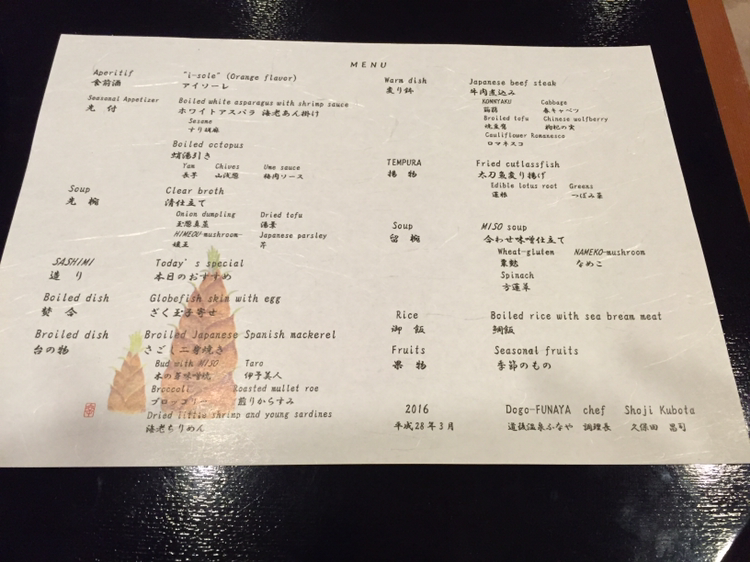 MENU
Aperitif "i-sole" (Orange flavor)
食前酒 アイソーレ
Seasonal Appetiser Boiled white asparagus with shrimp sauce
先 付 ホワイトアスパラ 海老あん掛け
Sesame
すり胡麻
Boiled octopus
蛸湯引き
Yam Chives Ume sauce
長芋 山浅葱 梅肉ソース
Soup Clear broth
先 椀 清仕立て
Onion dumpling Dried tofu
玉葱真蒸 湯葉
HIMEOU-mushroom Japanese parsley
姫王 芹
SASHIMI Today's special
造 り 本日のおすすめ
Boiled dish Globefish skin with egg
焚 合 ざく玉子寄せ
Broiled dish Broiled Japanese Spanish mackerel
台の物 さごし二身焼き
Bud with MISO Taro
木の芽味噌焼 伊予美人
Broccoli Roasted mullet roe
ブロッコリー 煎りからすみ
Dried little shrimp and young sardines
海老ちりめん
Warm dish Japanese beef steak
炙り鉢 牛肉煮込み
KONNYAKU Cabbage
蒟蒻 春キャベツ
Broiled tofu Chinese wolfberry
焼豆腐 枸杞の実
Cauliflower Romanesco
ロマネスコ
TEMPURA Fried cutlassfish
揚 物 太刀魚炙り揚げ
Edible lotus root Greens
蓮根 つぼみ菜
Soup MISO soup
留 椀 合わせ味噌仕立て
Wheat-gluten NAMEKO-mushroom
粟麩 なめこ
Spinach
方蓮草
Rice Boiled rice with sea bream meat
御 飯 鯛飯
Fruits Seasonal fruits
果 物 季節のもの
2016 Dogo-FUNAYA chef Shoji Kubota
平成28年3月 道後温泉ふなや 調理長 久保田 昌司